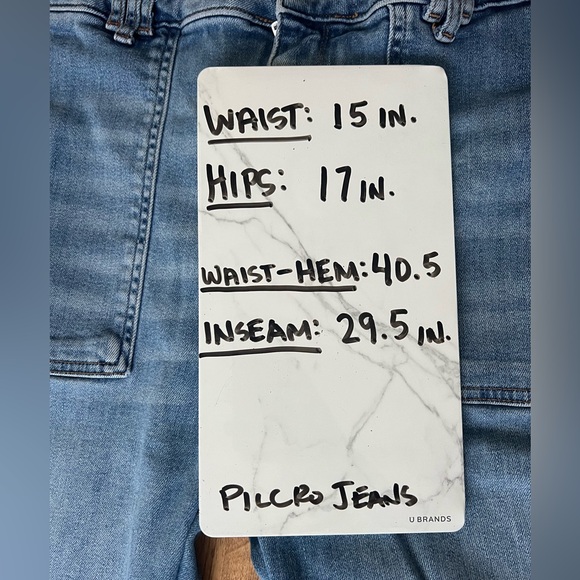 WAIST: 15 IN.
HIPS: 17 IN.
WAIST-HEM: 40.5
INSEAM: 29.5 IN.
PILCRO JEANS
U BRANDS